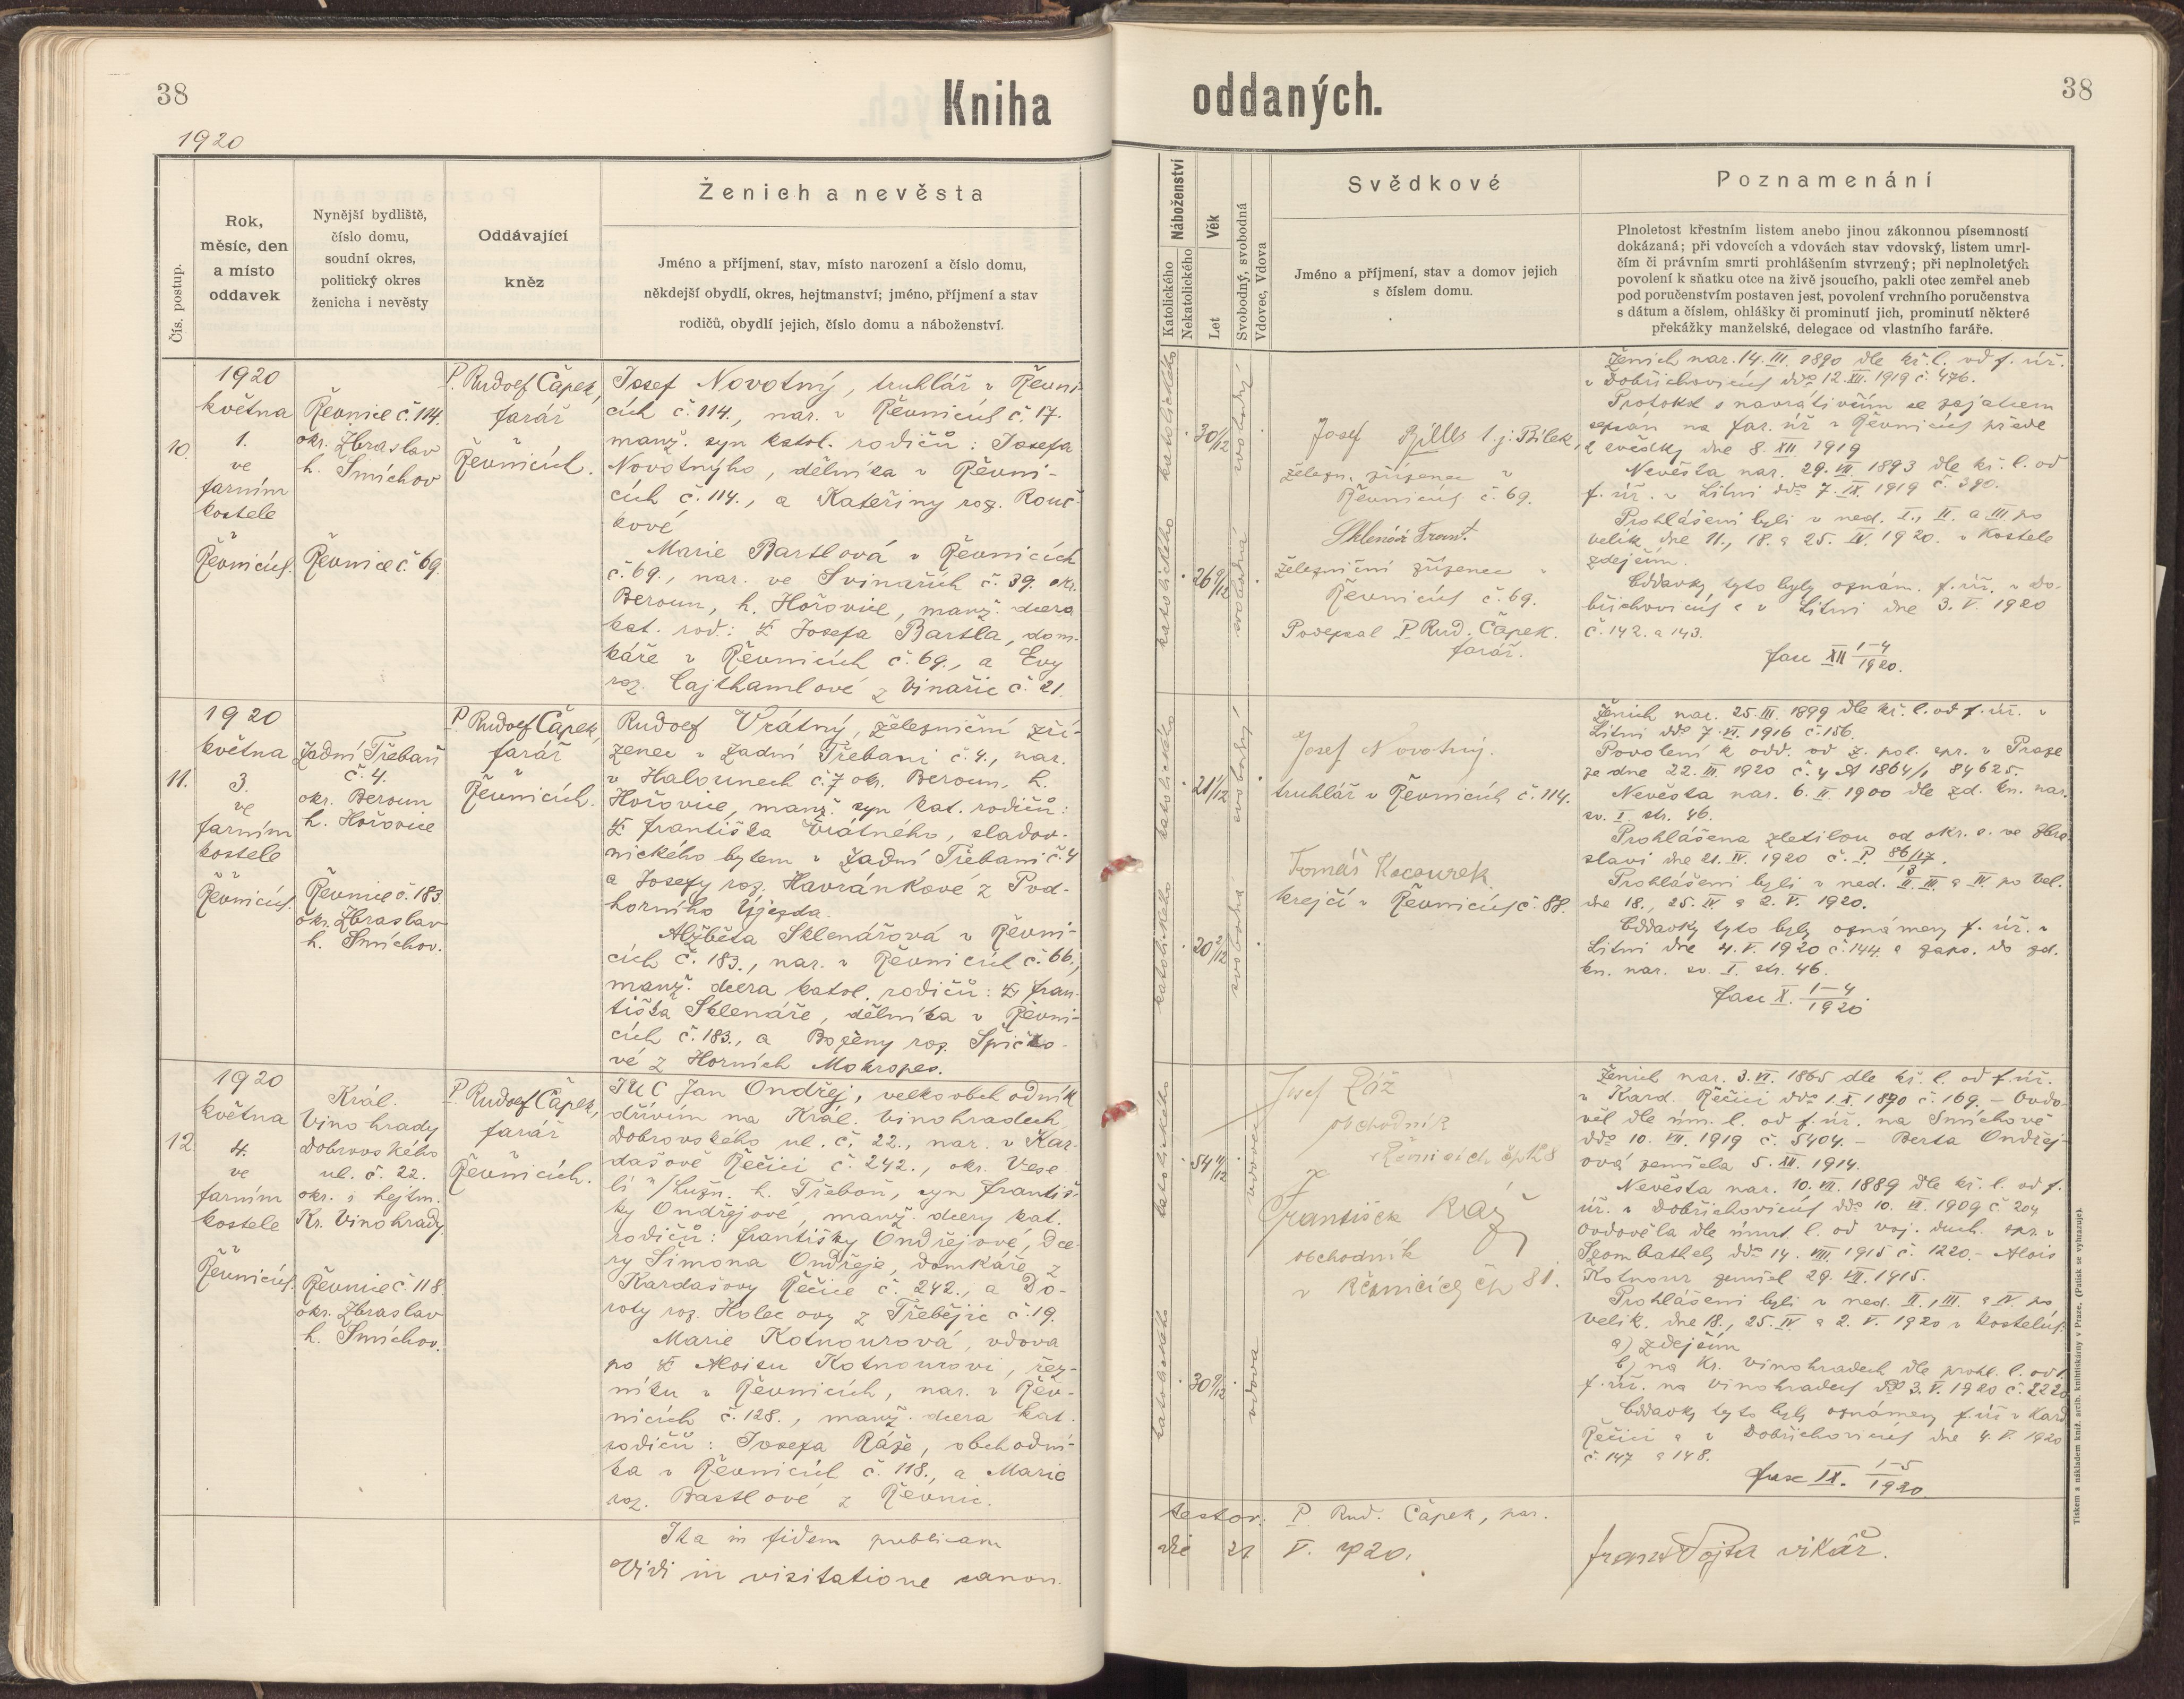 38
Kniha
oddaných.
38
1920
Čís. postup.
Rok,
měsíc, den
a místo
oddavek
Nynější bydliště,
číslo domu,
soudní okres,
politický okres
ženicha i nevěsty
Oddávající
kněz
Ženich a nevěsta
Jméno a příjmení, stav, místo narození a číslo domu,
někdejší obydlí, okres, hejtmanství; jméno, příjmení a stav
rodičů, obydlí jejich, číslo domu a náboženství.
Náboženství
Katolického
Nekatolického
Věk
Let
Svobodný, svobodná
Vdovec, Vdova
Svědkové
Jméno a příjmení, stav a domov jejich
s číslem domu.
Poznamenání
Plnoletost křestním listem anebo jinou zákonnou písemností
dokázaná; při vdovcích a vdovách stav vdovský, listem umrl-
čím či právním smrti prohlášením stvrzený; při neplnoletých
povolení k sňatku otce na živě jsoucího, pakli otec zemřel aneb
pod poručenstvím postaven jest, povolení vrchního poručenstva
s dátum a číslem, ohlášky či prominutí jich, prominutí některé
překážky manželské, delegace od vlastního faráře.
10.
1920
května
1.
ve
farním
kostele
v
Řevnicích.
Řevnice č. 114.
okr. Zbraslav
h. Smíchov
Řevnice č. 69.
P. Rudolf Čapek,
farář
v
Řevnicích.
Josef Novotný, truhlář v Řevni-
cích č. 114., nar. v Řevnicích č. 17.
manž. syn katol. rodičů: Josefa
Novotnýho, dělníka v Řevni-
cích č. 114., a Kateřiny roz. Rouč-
kové
Marie Bartlová v Řevnicích
č. 69., nar. ve Svinařích č. 39. okr.
Beroun, h. Hořovice, manž. dcera
kat. rod.: Josefa Bartla, dom-
káře v Řevnicích č. 69., a Evy
roz. Cajthamlové z Vinařic č. 21.
katolického
30 1/12
svobodný
katolického
26 9/12
svobodná
Josef Bílek l. j: Bílek,
železn. zřízenec v
Řevnicích č. 69.
Sklenář Frant.
železniční zřízenec v
Řevnicích č. 69.
Podepsal P. Rud. Čapek.
farář.
Ženich nar. 14. III. 1890 dle kř. l. od f. úř.
v Dobřichovicích ddo 12. XII. 1919 č. 476.
Protokol s navrátivším se zajatcem
sepsán na far. úř. v Řevnicích přede
2 svědky dne 8. XII. 1919
Nevěsta nar. 29. VII. 1893 dle kř. l. od
f. úř. v Litni ddo 7. IX. 1919 č. 390.
Prohlášeni byli v ned. I., II. a III po
velik. dne 11., 18. a 25. IV. 1920. v kostele
zdejším.
Oddavky tyto byly oznám. f. úř. v Do-
břichovicích a v Litni dne 3. V. 1920
č. 142. a 143.
fasc XII 1-4/1920.
11.
1920
května
3.
ve
farním
kostele
v
Řevnicích.
Zadní Třebaň
č. 4.
okr. Beroun
h. Hořovice
Řevnice č. 183
okr. Zbraslav
h. Smíchov.
P. Rudolf Čapek,
farář
v
Řevnicích.
Rudolf Vrátný, železniční zří-
zenec v Zadní Třebani č. 4., nar.
v Halounech č. 7 okr. Beroun, h.
Hořovice, manž. syn kat. rodičů:
Františka Vrátného, sladov-
nického bytem v Zadní Třebani č. 4
a Josefy roz. Havránkové z Pod-
horního Újezda.
Alžběta Sklenářová v Řevni-
cích č. 183., nar. v Řevnicích č. 66.,
manž. dcera katol. rodičů: Fran-
tiška Sklenáře, dělníka v Řevni-
cích č. 183., a Boženy roz. Špičko-
vé z Horních Mokropes.
katolického
21 1/12
svobodný
katolického
20 2/12
svobodná
Josef Novotný.
truhlář v Řevnicích č. 114.
Tomáš Kocourek
krejčí v Řevnicích č. 88.
Ženich nar. 25. III. 1899 dle kř. l. od f. úř. v
Litni ddo 7. VI. 1916 č. 156.
Povolení k odd. od z. pol. spr. v Praze
ze dne 22. III. 1920 č. 4 A 1864/1 84625.
Nevěsta nar. 6. II. 1900 dle zd. kn. nar.
sv. I. str. 46.
Prohlášena zletilou od okr. s. ve Zbra-
slavi dne 21. IV. 1920 č. P. 86/17/13.
Prohlášeni byli v ned. II. III. a IV. po Vel.
dne 18., 25. IV a 2. V. 1920.
Oddavky tyto byly oznámeny f. úř. v
Litni dne 4. V. 1920 č. 144 a zaps. do zd.
kn. nar. sv. I. str. 46.
fasc X. 1-4/1920
12.
1920
května
4.
ve
farním
kostele
v
Řevnicích.
Král.
Vinohrady
Dobrovského
ul. č. 22.
okr. i hejtm.
Kr. Vinohrady
Řevnice č. 118
okr. Zbraslav
h. Smíchov.
P. Rudolf Čapek,
farář
v
Řevnicích.
JUC Jan Ondřej, velkoobchodník
dřívím na Král. Vinohradech,
Dobrovského ul. č. 22., nar. v Kar-
dašově Řečici č. 242., okr. Vese-
lí n/Lužn. h. Třeboň, syn Františ-
ky Ondřejové, manž. dcery kat.
rodičů: Františky Ondřejové, dce-
ry Šimona Ondřeje, domkáře z
Kardašovy Řečice č. 242., a Do-
roty roz. Holecovy z Třebějic č. 19.
Marie Kotnourová, vdova
po Aloisu Kotnourovi, řez-
níku v Řevnicích, nar. v Řev-
nicích č. 128., manž. dcera kat.
rodičů: Josefa Ráže, obchodní-
ka v Řevnicích č. 118., a Marie
roz. Bastlové z Řevnic.
katolického
54 11/12
vdovec
katolického
30 9/12
vdova
Josef Ráž
obchodník
v Řevnicích čp. 128
František Ráž
obchodník
v Řevnicích čp 81.
Ženich nar. 3. VI. 1865 dle kř. l. od f. úř.
v Kard. Řečici ddo 1. X. 1890 č. 169. – Ovdo-
věl dle úm. l. od f. úř. na Smíchově
ddo 10. VII. 1919 č. 5404. – Berta Ondřej-
ová zemřela 5. XII. 1914.
Nevěsta nar. 10. VII. 1889 dle kř. l. od f.
úř. v Dobřichovicích ddo 10. VI. 1909 č. 204
ovdověla dle úmrt. l. od voj. duch. spr. v
Szombathely ddo 14. VIII. 1915 č. 1220. – Alois
Kotnour zemřel 29. VII. 1915.
Prohlášeni byli v ned. II., III. a IV. po
velik. dne 18., 25. IV a 2. V. 1920 v kostelích:
a) zdejším
b) na Kr. Vinohradech dle prohl. l. od
f. úř. na Vinohradech ddo 3. V. 1920 č. 2220
Oddavky tyto byly oznámeny f. úř. v Kard.
Řečici a v Dobřichovicích dne 4. V. 1920
č. 147 a 148.
fasc IX. 1-5/1920.
Ita in fidem publicam
testor: P. Rud. Čapek, par.
Vidi in visitatione canon.
die 21 V. 1920.
Frant Vojta vikář.
Tiskem a nákladem kníž. arcib. knihtiskárny v Praze. (Patisk se vyhrazuje).